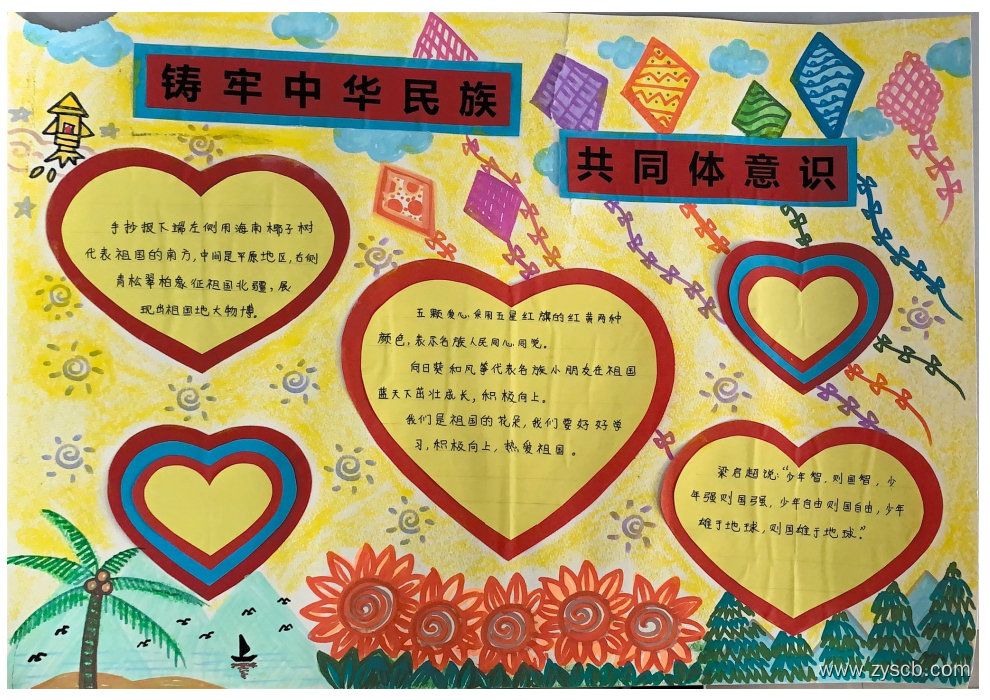 铸牢中华民族
共同体意识
手抄报下端左侧用海南椰子树
代表祖国的南方,中间是平原地区,右侧
青松翠柏象征祖国北疆,展
现出祖国地大物博。
五颗爱心采用五星红旗的红黄两种
颜色,表示各族人民同心同党。
向日葵和风筝代表各族小朋友在祖国
蓝天下茁壮成长,积极向上。
我们是祖国的花朵,我们要好好学
习,积极向上,热爱祖国。
梁启超说:“少年智,则国智,少
年强则国强,少年自由则国自由,少年
雄于地球,则国雄于地球。”
www.zyscb.com